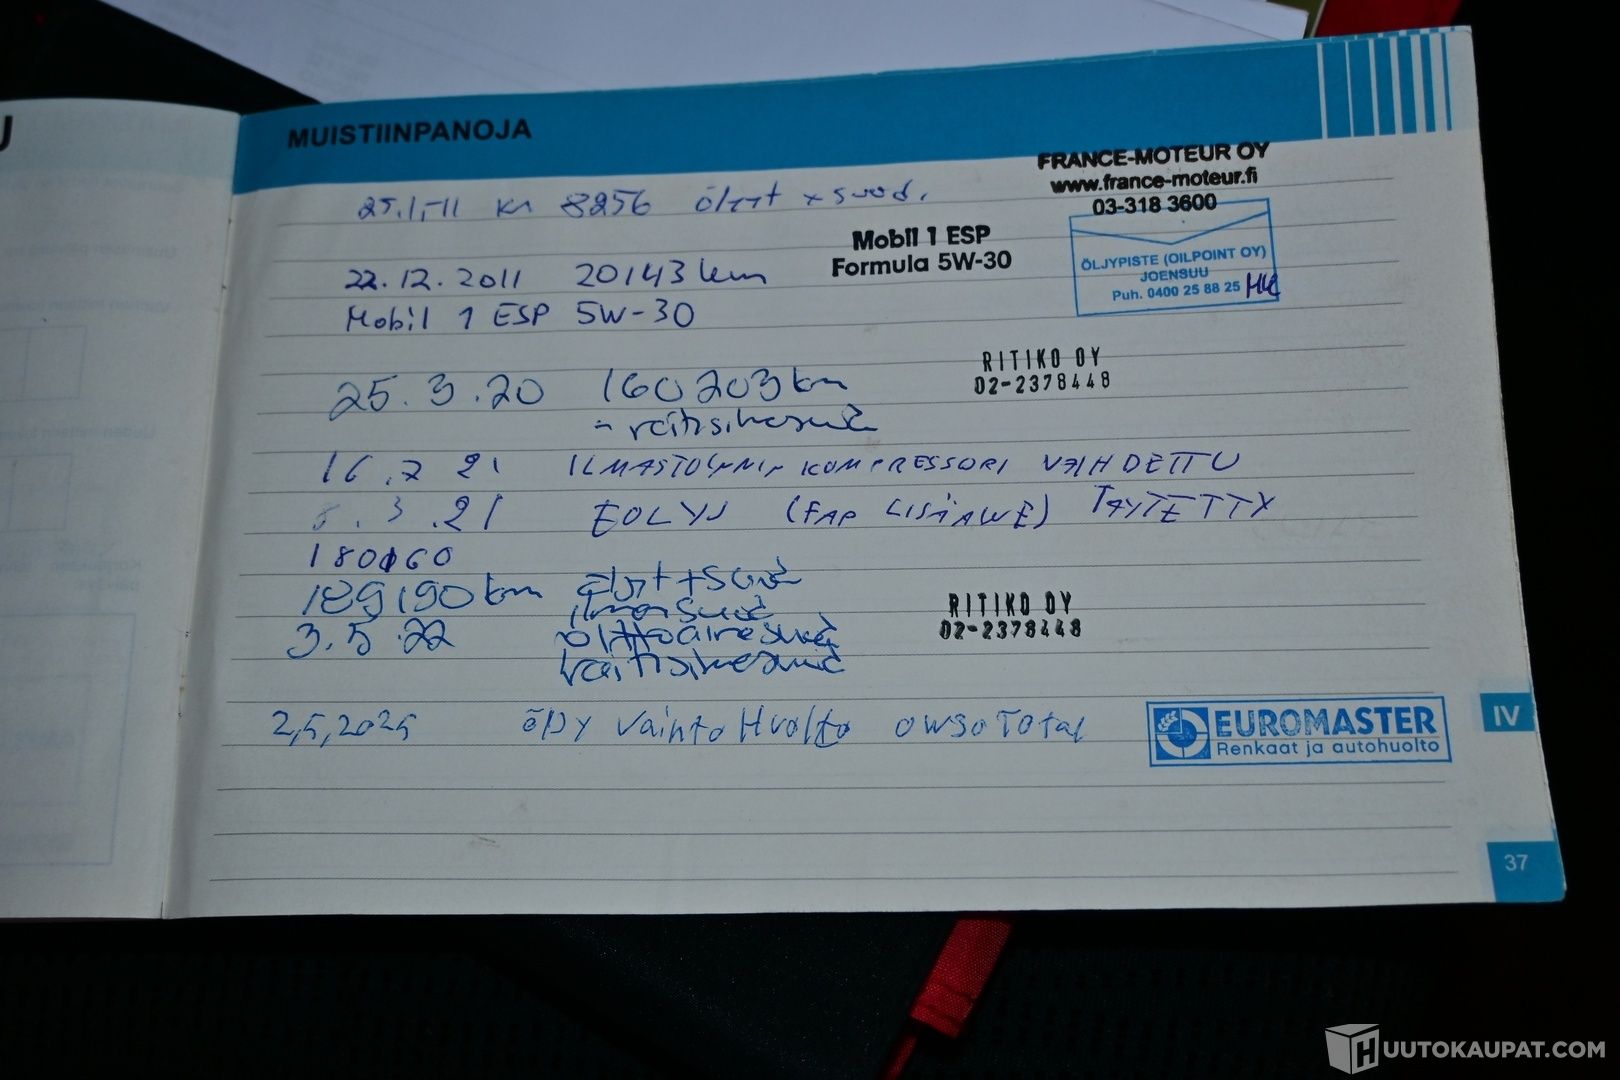 MUISTIINPANOJA
FRANCE-MOTEUR OY
www.france-moteur.fi
03-318 3600
25.1.-11 km 8256 öljyt + suod.
Mobil 1 ESP
Formula 5W-30
ÖLJYPISTE (OILPOINT OY)
JOENSUU
Puh. 0400 25 88 25
22.12.2011 20143 km
Mobil 1 ESP 5W-30
RITIKO OY
02-2378448
25.3.20 160203 km
- raitisilmasuod
16.7 21 ILMASTOINNIN KOMPRESSORI VAIHDETTU
.3.21 EOLYS (FAP LISÄAINE) TÄYTETTY
180160
189190 km öljyt + suod
ilmansuod
RITIKO OY
02-2378448
3.5.22 polttoainesuod
raitisilmasuod
2,5,2025 öljy Vaihto Huolto 0W30 Total
EUROMASTER
Renkaat ja autohuolto
IV
37
HUUTOKAUPAT.COM